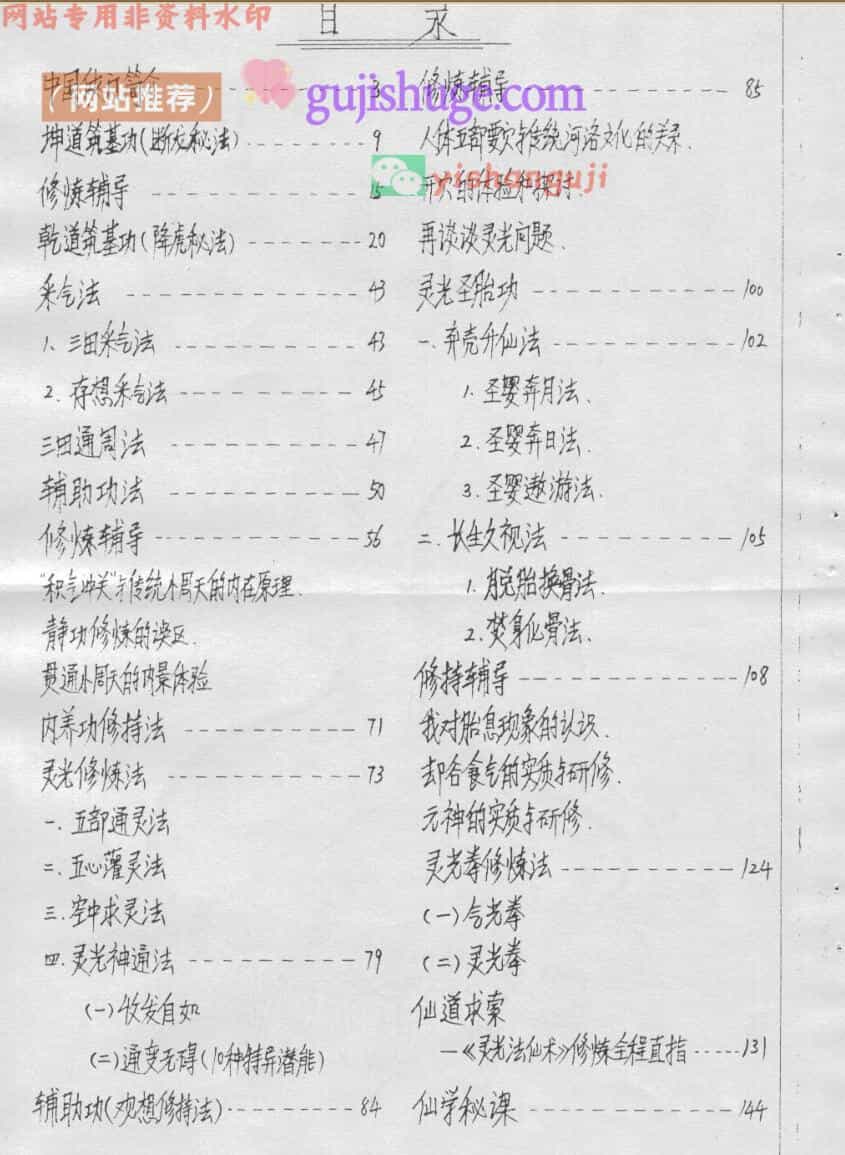 网站专用非资料水印
目 录
(网站推荐)
gujishuge.com
yishanguji
中国 3
坤道筑基功(断龙秘法) 9
修炼辅导 15
乾道筑基功(降虎秘法) 20
采气法 43
1、三田采气法 43
2、存想采气法 45
三田通周法 47
辅助功法 50
修炼辅导 56
“积气冲关”与传统小周天的内在原理.
静功修炼的误区.
贯通小周天的内景体验
内养功修持法 71
灵光修炼法 73
一.五部通灵法
二.五心灌灵法
三.空中求灵法
四.灵光神通法 79
(一)收发自如
(二)通变无碍(10种特异潜能)
辅助功(观想修持法) 84
修炼辅导 85
人体五部要穴与传统河洛文化的关系.
开穴的体验和探讨.
再谈谈灵光问题.
灵光圣胎功 100
一.弃壳升仙法 102
1.圣婴奔月法、
2.圣婴奔日法.
3.圣婴遨游法.
二.长生久视法 105
1.脱胎换骨法.
2.焚身化骨法、
修持辅导 108
我对胎息现象的认识.
却谷食气的实质与研修.
元神的实质与研修.
灵光拳修炼法 124
(一)气光拳
(二)灵光拳
仙道求索
—《灵光法仙术》修炼全程直指 131
仙学秘课 144